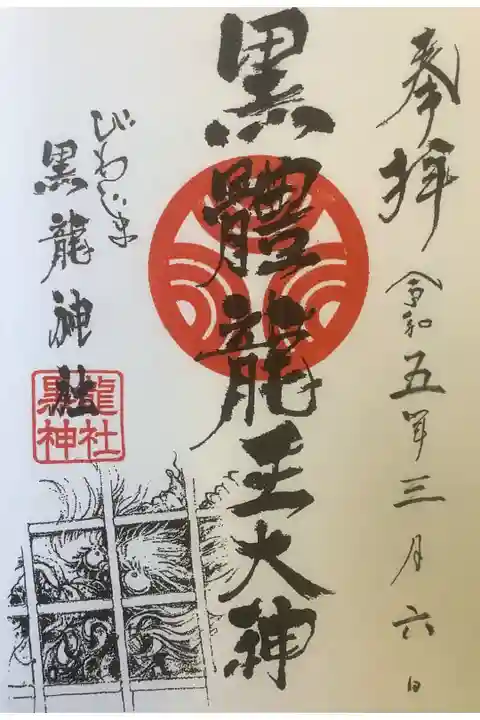 奉拝 令和五年三月六日
黒體龍王大神
びわじま
黒龍神社
黒龍神社